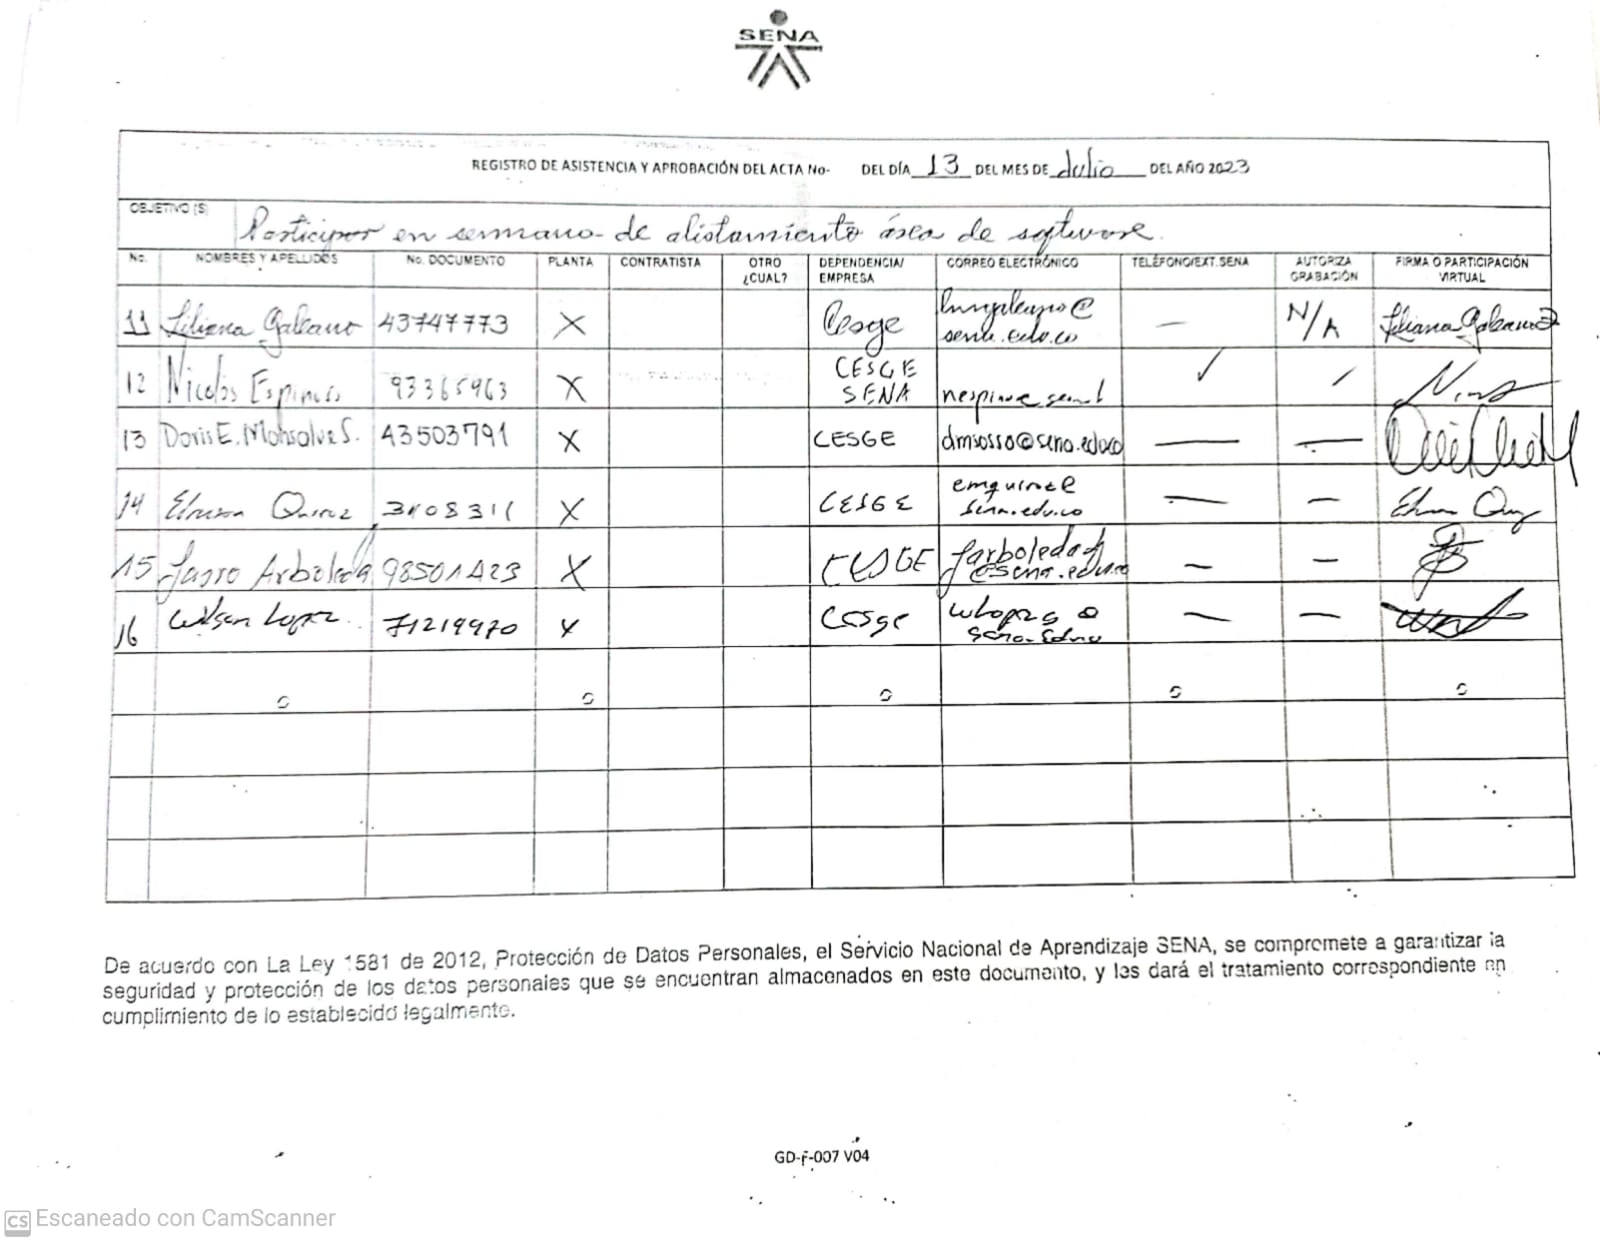 SENA
REGISTRO DE ASISTENCIA Y APROBACIÓN DEL ACTA No- DEL DÍA 13 DEL MES DE Julio DEL AÑO 2023
OBJETIVO (S) Participar en semana de alistamiento área de software.
No. NOMBRES Y APELLIDOS No. DOCUMENTO PLANTA CONTRATISTA OTRO ¿CUAL? DEPENDENCIA/ EMPRESA CORREO ELECTRÓNICO TELÉFONO/EXT. SENA AUTORIZA GRABACIÓN FIRMA O PARTICIPACIÓN VIRTUAL
11 Liliana Galeano 43747773 X Cesge @ sena.edu.co — N/A Liliana Galeano
12 Nicolás Espinosa 93365963 X CESGE SENA ✓
13 Doris E. Monsalve S. 43503791 X CESGE dmsosso@sena.edu.co — —
14 X CESGE sena.edu.co — —
15 Arboleda 98501423 X CESGE jarboledaf @sena.edu.co — —
16 Wilson Lopez. 71219970 X Cesge — —
De acuerdo con La Ley 1581 de 2012, Protección de Datos Personales, el Servicio Nacional de Aprendizaje SENA, se compromete a garantizar la
seguridad y protección de los datos personales que se encuentran almacenados en este documento, y les dará el tratamiento correspondiente en
cumplimiento de lo establecido legalmente.
GD-F-007 V04
CS Escaneado con CamScanner